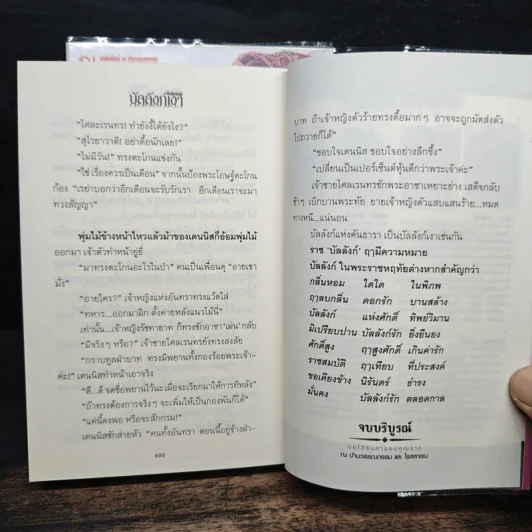 บัลลังก์เงา
"โศละเรนทร! ทำยังงี้ได้ยังไง?"
"สุไรยาวาตี! อย่าดื้อนักเลย!"
"ไม่มีวัน!" ทรงตะโกนแข่งกัน
"ใช่ เรื่องควรเป็นเดือน" จากนั้นป้องพระโอษฐ์ตะโกน
ก้อง "เรย่าบอกว่าอีกเดือนจะรับรักเรา อีกเดือนเราจะมา
ทวงสัญญา"
พุ่มไม้ข้างหน้าไหวแล้วม้าของเดนนิสก็อ้อมพุ่มไม้
ออกมา เจ้าตัวทำหน้ายู่ยี่
"มาทรงตะโกนอะไรในป่า" คนเป็นเพื่อนดุ "อายเขา
มั่ง"
"อายใคร?" เจ้าหญิงแห่งอันทราทรงแว้ดใส่
"ทหาร...ออกมาฝึก ตั้งค่ายหลังแนวไม้นี่"
เท่านั้น...เจ้าหญิงรัชทายาท ก็ทรงชักอาชา 'เผ่น' กลับ
"มีจริงๆ หรือ?" เจ้าชายไศลเรนทรทรงสงสัย
"กราบทูลฝ่าบาท ทรงมีพยานทั้งกองร้อยพระเจ้า-
ค่ะ!" เดนนิสทำหน้าเอาจริง
"ดี...ดี จดชื่อพยานไว้นะเผื่อจะเรียกมาให้การทีหลัง"
"ถ้าทรงต้องการจริงๆ จะเพิ่มให้เป็นกองพันก็ได้"
"แค่นี้คงพอ หรือจะสักกรม!"
เดนนิสชักส่ายหัว "คนทั้งอันทรา ตอนนี้อยู่ข้างฝ่า-
บาท ถ้าเจ้าหญิงตัวร้ายทรงดื้อมากๆ อาจจะถูกมัดส่งตัว
ไปถวายก็ได้"
"ขอบใจเดนนิส ขอบใจอย่างลึกซึ้ง"
"เปลี่ยนเป็นเปอร์เซ็นต์หุ้นดีกว่าพระเจ้าค่ะ"
เจ้าชายไศลเรนทรชักพระอาชาเหยาะย่าง เสด็จกลับ
ช้าๆ เบิกบานพระทัย ยายเจ้าหญิงตัวแสบแสนร้าย...หมด
ทางหนี...แน่นอน
บัลลังก์แห่งคันธารา เป็นบัลลังก์เงาเช่นกัน
ราช 'บัลลังก์' ฤๅมีความหมาย
บัลลังก์ ในพระราชหฤทัยต่างหากสำคัญกว่า
กลิ่นหอม ใดใด ในพิภพ
ฤๅลบกลิ่น ดอกรัก บานสล้าง
บัลลังก์ แห่งศักดิ์ ทิพย์วิมาน
มิเปรียบปาน บัลลังก์รัก ยิ่งยืนยง
ศักดิ์สูง ฤๅสูงศักดิ์ เกินค่ารัก
ราชสมบัติ ฤๅเทียบ ที่ประสงค์
ขอเคียงข้าง นิรันดร์ ธำรง
มั่นคง บัลลังก์รัก ตลอดกาล
จบบริบูรณ์
ณ บ้านวรรณกรรม และ โรสลาเรน